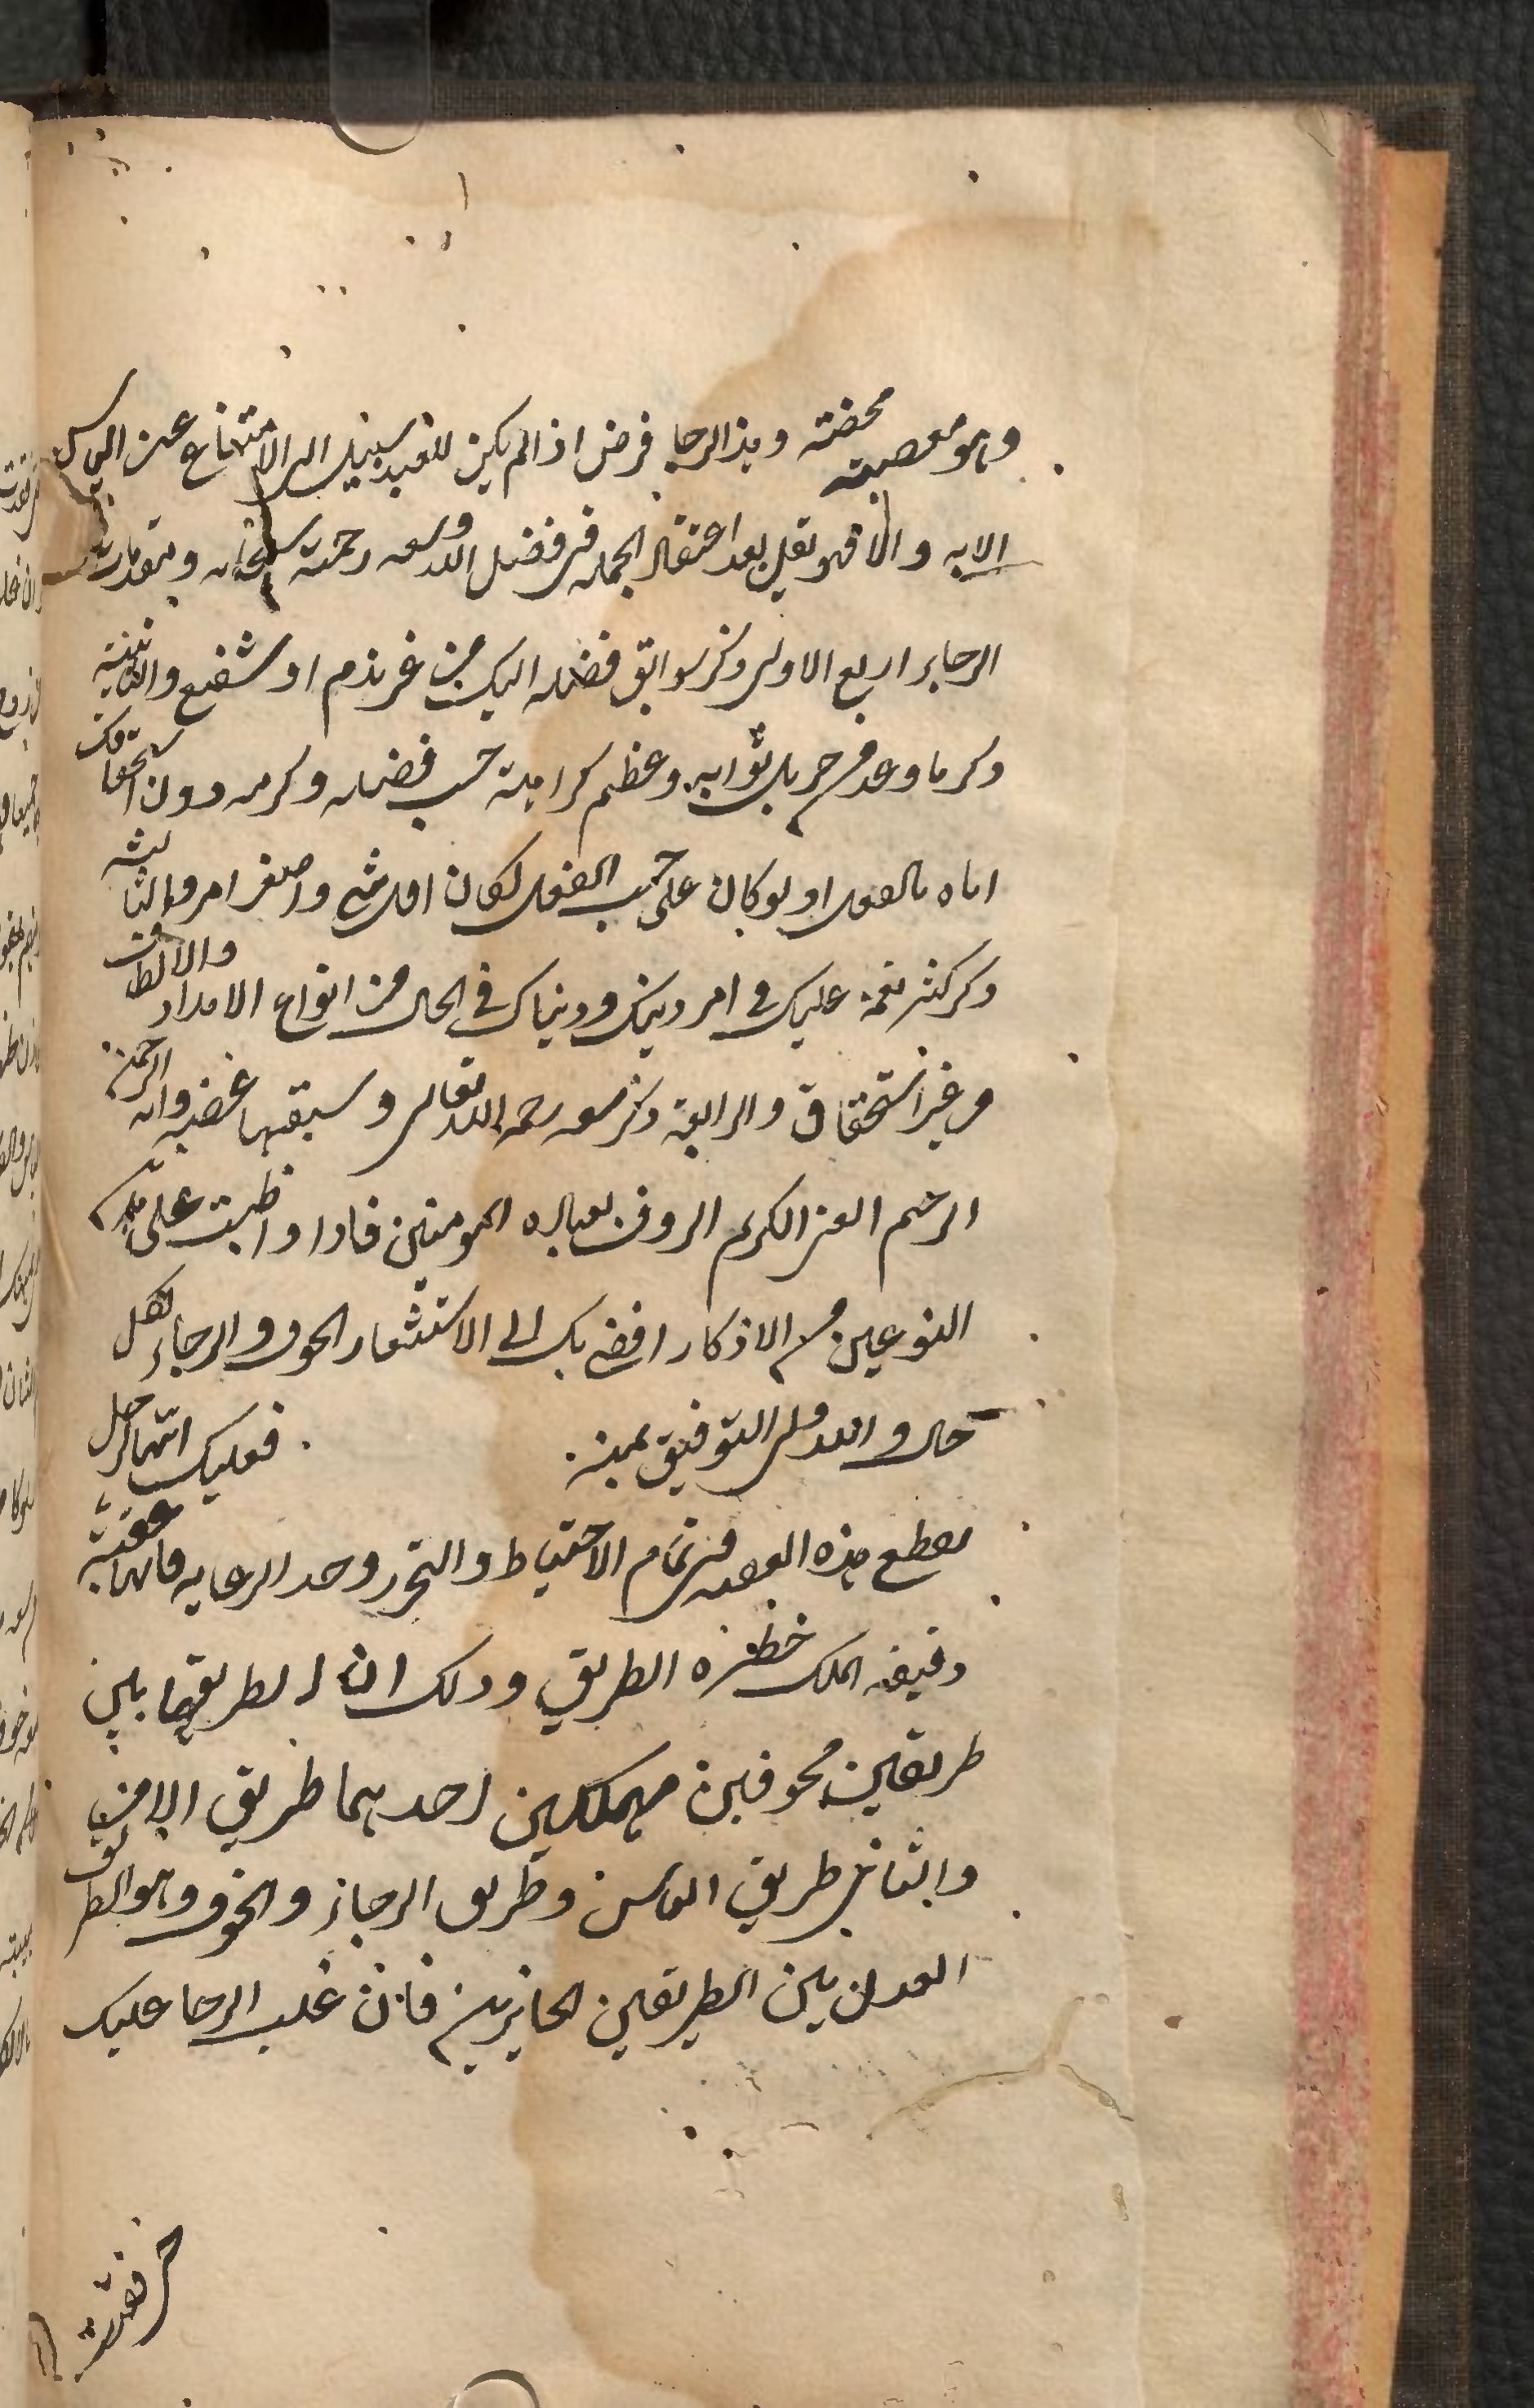 وهو معصية محضة وهذا الرجا فرض اذا لم يكن للعبد سبيل الى الامتناع عن الياس
الا به والا فهو نفل بعد اعتقاد الجملة فى فضل الله وسعه رحمته سبحانه ومقدمات
الرجا اربع الاولى ذكر سوابق فضله اليك من غير قدم او شفيع والثانية
ذكر ما وعد من جزيل ثوابه وعظيم كرامته حسب فضله وكرمه دون استحقاقك
اياه بالفعل اذ لو كان على حسب الفعل لكان اقل شى واصغر امر والثالثه
ذكر كثر نعمه عليك فى امر دينك ودنياك فى الحال من انواع الامداد والالطاف
من غير استحقاق والرابعة ذكر سعه رحمه الله تعالى وسبقها غضبه وانه الرحمن
الرحيم الغنى الكريم الروف بعباده المومنين فاذا واظبت على هذين
النوعين من الاذكار افضى بك الى الاستشعار الخوف والرجاء لكل
حال والله ولى التوفيق بمنه . فعليك ايها الرجل
بقطع هذه العقبه فى تمام الاحتياط والتحرز وحد الرعايه فانها عقبة
دقيقه الملك خطره الطريق وذلك ان الطريقها بين
طريقين مخوفين مهلكين احدهما طريق الامن
والثانى طريق الياس وطريق الرجاء والخوف وهو الطريق
العدل بين الطريقين الجايرين فان غلب الرجا عليك
حتى فقدت